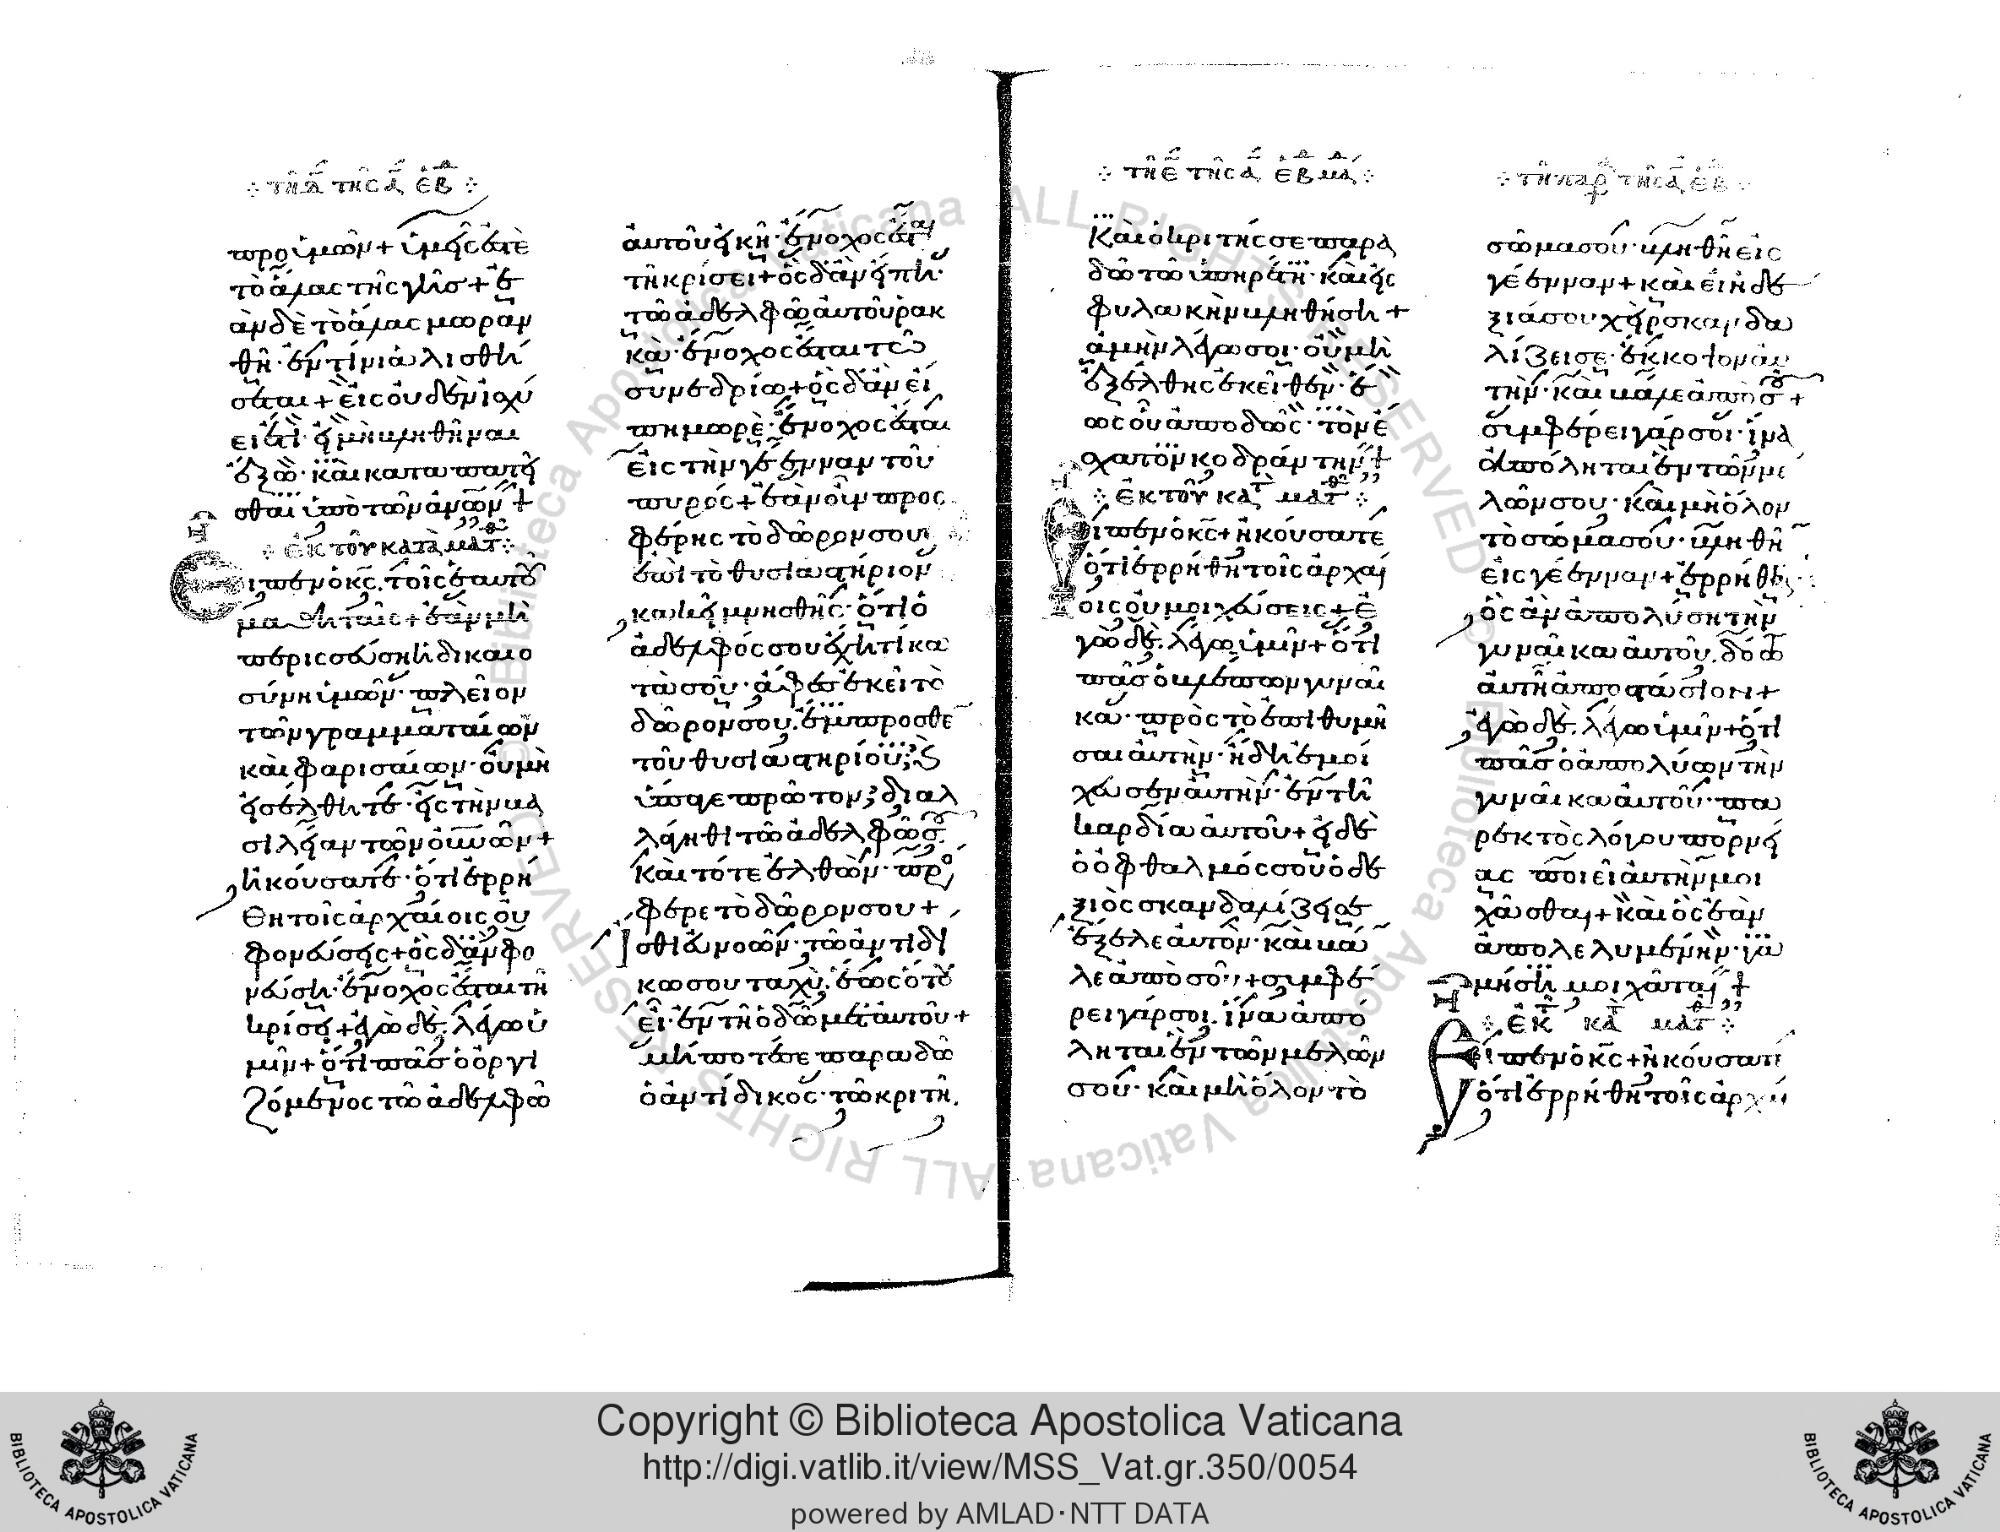 τῆ δ τῆς α ἑβδ
προ ὑμῶν + ὑμεῖς ἐστὲ
τὸ ἅλας τῆς γῆς + ἐ
ὰν δὲ τὸ ἅλας μωραν
θῆ · ἐν τίνι ἁλισθή
σεται + εἰς οὐδὲν ἰσχύ
ει ἔτι · εἰ μὴ βληθῆναι
ἔξω · καὶ καταπατεῖ
σθαι ὑπὸ τῶν ἀνων +
ἐκ τοῦ κατὰ ματθ
Εἶπεν ὁ κς · τοῖς ἑαυτοῦ
μαθηταῖς + ἐὰν μὴ
περισσεύση ἡ δικαιο
σύνη ὑμῶν · πλεῖον
τῶν γραμματαίων
καὶ φαρισαίων · οὐ μὴ
εἰσέλθητε · εἰς τὴν βα
σιλείαν τῶν οὐνῶν +
ἠκούσατε · ὅτι ἐρρή
θη τοῖς ἀρχαίοις οὐ
φονεύσεις + ὃς δ' ἂν φο
νεύση · ἔνοχος ἔσται τῆ
κρίσει + ἐγὼ δὲ · λέγω ὑ
μῖν + ὅτι πᾶς ὁ ὀργι
ζόμενος τῶ ἀδελφῶ
αὐτοῦ εἰκῆ · ἔνοχος ἔσται
τῆ κρίσει + ὃς δ' ἂν εἴπη ·
τῶ ἀδελφῶ αὐτοῦ ῥακ
κὰ · ἔνοχος ἔσται τῶ
συνεδρίω + ὃς δ' ἂν εἴ
πη μωρὲ · ἔνοχος ἔσται
εἰς τὴν γέενναν τοῦ
πυρός + ἐὰν οὖν προς
φέρης τὸ δῶρον σου
ἐπὶ τὸ θυσιαστήριον
κακεῖ μνησθῆς · ὅτι ὁ
ἀδελφός σου ἔχει τὶ κα
τὰ σοῦ · ἄφες ἐκεῖ τὸ
δῶρον σου · ἔμπροσθε
τοῦ θυσιαστηρίου · καὶ
ὕπαγε πρῶτον · διαλ
λάγηθι τῶ ἀδελφῶ σ
Καὶ τότε ἐλθὼν · προς
φερε τὸ δῶρον σου +
Ἴσθι εὐνοῶν · τῶ ἀντιδί
κω σου ταχὺ · ἕως ὅτου
εἶ · ἐν τῆ ὁδῶ μετ' αὐτοῦ +
μή ποτέ σε παραδῶ
ὁ ἀντίδικος · τῶ κριτῆ .
τῆ ε τῆς α ἑβδμά
Καὶ ὁ κριτής σε παρα
δῶ τῶ ὑπηρέτη · καὶ εἰς
φυλακὴν βληθήση +
ἀμὴν λέγω σοι · οὐ μὴ
ἐξέλθης ἐκεῖθεν · ἕ
ως οὗ ἀποδῶς · τὸν ἔ
σχατον κοδράντην +
ἐκ τοῦ κατ ματθ
Εἶπεν ὁ κς + ἠκούσατε
ὅτι ἐρρήθη τοῖς ἀρχαί
οις οὐ μοιχεύσεις + ἐ
γὼ δὲ · λέγω ὑμῖν + ὅτι
πᾶς ὁ βλέπων γυναῖ
κα · πρὸς τὸ ἐπιθυμῆ
σαι αὐτὴν · ἤδη ἐμοί
χευσεν αὐτὴν · ἐν τῆ
καρδία αὐτοῦ + εἰ δὲ
ὁ ὀφθαλμός σου ὁ δε
ξιὸς σκανδαλίζει σε
ἔξελε αὐτὸν · καὶ βά
λε ἀπὸ σοῦ + συμφέ
ρει γάρ σοι · ἵνα ἀπό
ληται ἓν τῶν μελῶν
σου · καὶ μὴ ὅλον τὸ
τῆ παρ τῆς α ἑβ
σῶμα σου · βληθῆ εἰς
γέενναν + καὶ εἰ ἡ δε
ξιά σου χεὶρ σκανδα
λίζει σε · ἔκκοψον αὐ
τὴν · καὶ βάλε ἀπὸ σοῦ +
συμφέρει γάρ σοι · ἵνα
ἀπόληται ἓν τῶν με
λῶν σου · καὶ μὴ ὅλον
τὸ σῶμα σου · βληθῆ
εἰς γέενναν + ἐρρήθη
ὃς ἂν ἀπολύση τὴν
γυναῖκα αὐτοῦ · δότω
αὐτῆ ἀποστάσιον +
ἐγὼ δὲ · λέγω ὑμῖν + ὅτι
πᾶς ὁ ἀπολύων τὴν
γυναῖκα αὐτοῦ · πα
ρεκτὸς λόγου πορνεί
ας ποιεῖ αὐτὴν μοι
χᾶσθαι + καὶ ὃς ἐὰν
ἀπολελυμένην · γα
μήση μοιχᾶται +
ἐκ κατ ματθ
Εἶπεν ὁ κς + ἠκούσατε
ὅτι ἐρρήθη τοῖς ἀρχαί
Copyright © Biblioteca Apostolica Vaticana
http://digi.vatlib.it/view/MSS_Vat.gr.350/0054
powered by AMLAD·NTT DATA
BIBLIOTECA APOSTOLICA VATICANA
BIBLIOTECA APOSTOLICA VATICANA
© Biblioteca Apostolica Vaticana ALL RIGHTS RESERVED
© Biblioteca Apostolica Vaticana ALL RIGHTS RESERVED